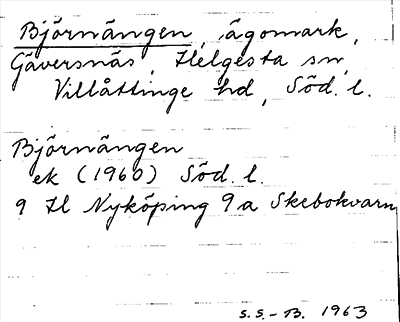 Björnängen, ägomark,
Gäversnäs, Helgesta sn,
Villåttinge hd, Söd. l.
Björnängen
ek (1960) Söd. l.
9 H Nyköping 9 a Skebokvarn
S.S.-B. 1963